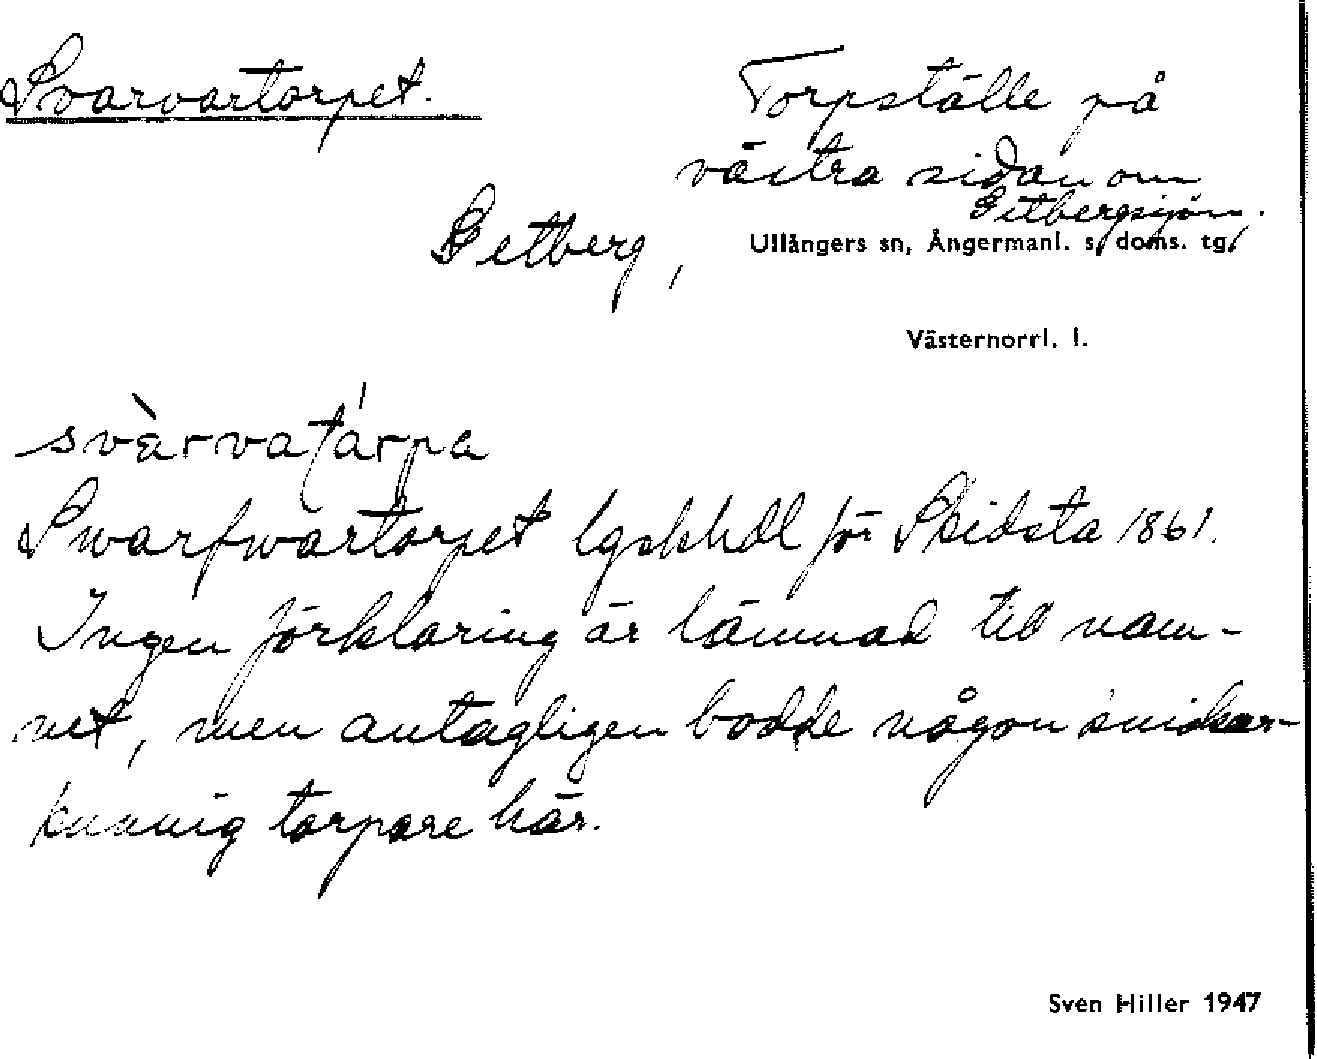 Svarvartorpet.
Torpställe på
västra sidan om
Getbergsjön.
Getberg,
Ullångers sn, Ångermanl. s. doms. tg,
Västernorrl. l.
svàrvatárpa
Swarfwartorpet lgskhdl för Skidsta 1861.
Ingen förklaring är lämnad till nam-
net, men antagligen bodde någon snickar-
kunnig torpare här.
Sven Hiller 1947